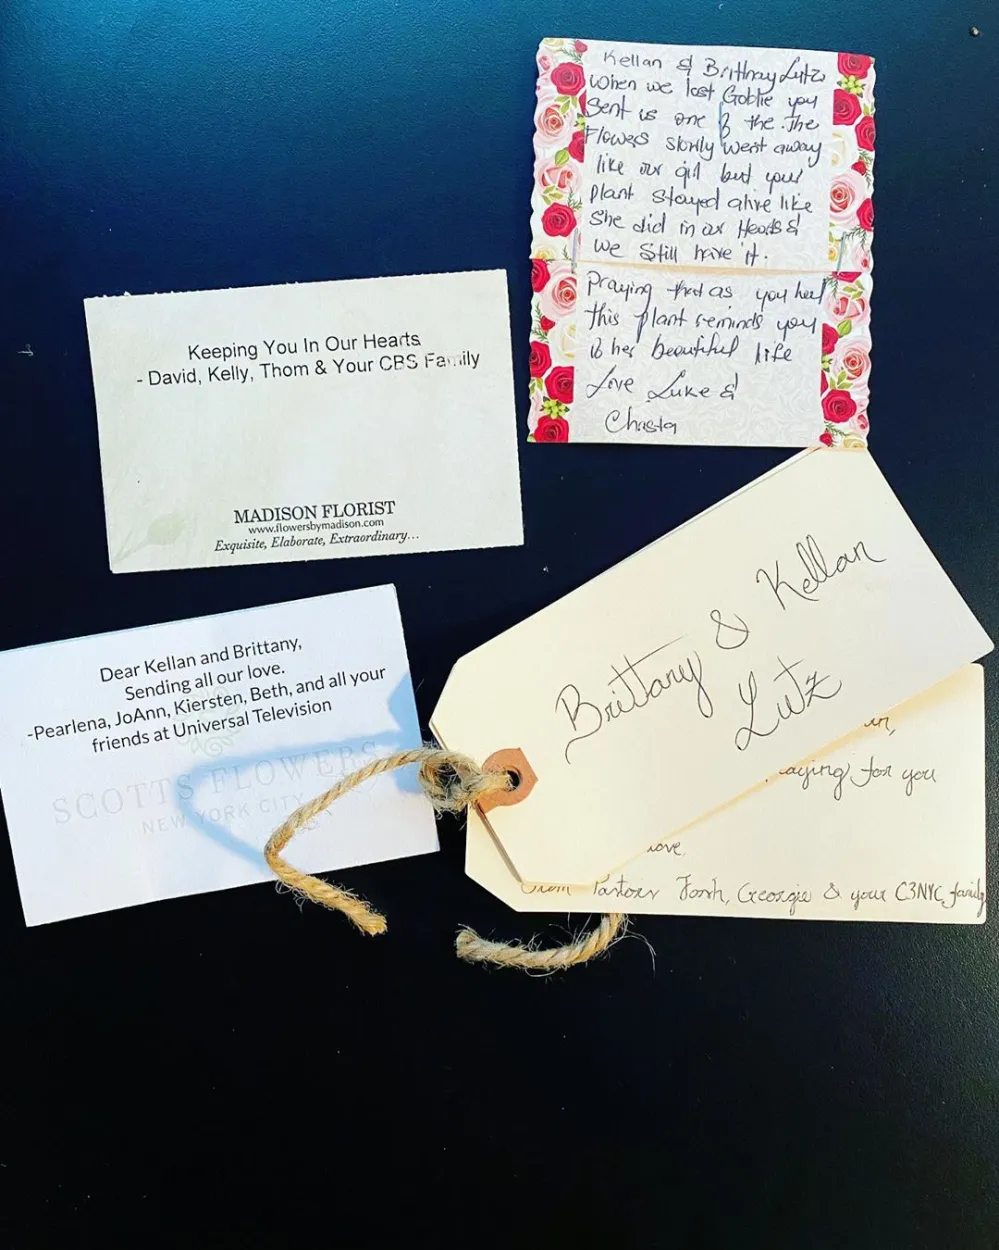 Kellan & Brittnay Lutz
When we lost Goblie you
Sent us one of the. The
Flowers slowly went away
like our girl but your
plant stayed alive like
She did in our Hearts &
we still have it.
Praying that as you heal
this plant reminds you
of her beautiful life
Love Luke &
Chasta
Keeping You In Our Hearts
- David, Kelly, Thom & Your CBS Family
MADISON FLORIST
www.flowersbymadison.com
Exquisite, Elaborate, Extraordinary...
Brittany & Kellan
Lutz
Dear Kellan and Brittany,
Sending all our love.
-Pearlena, JoAnn, Kiersten, Beth, and all your
friends at Universal Television
SCOTTS FLOWERS
NEW YORK CITY
praying for you
love,
From Pastors Josh, Georgie & your C3NYC family